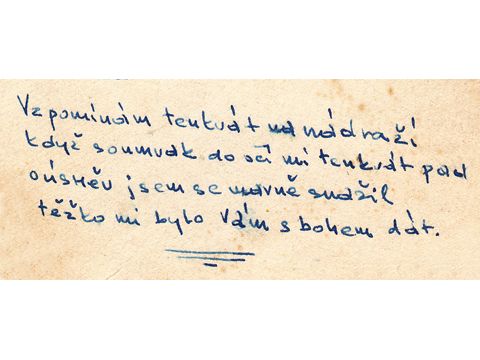 Vzpomínám tenkrát na nádraží
když soumrak do očí mi tenkrát pad
oúsměv jsem se marně snažil
těžko mi bylo Vám s bohem dát.